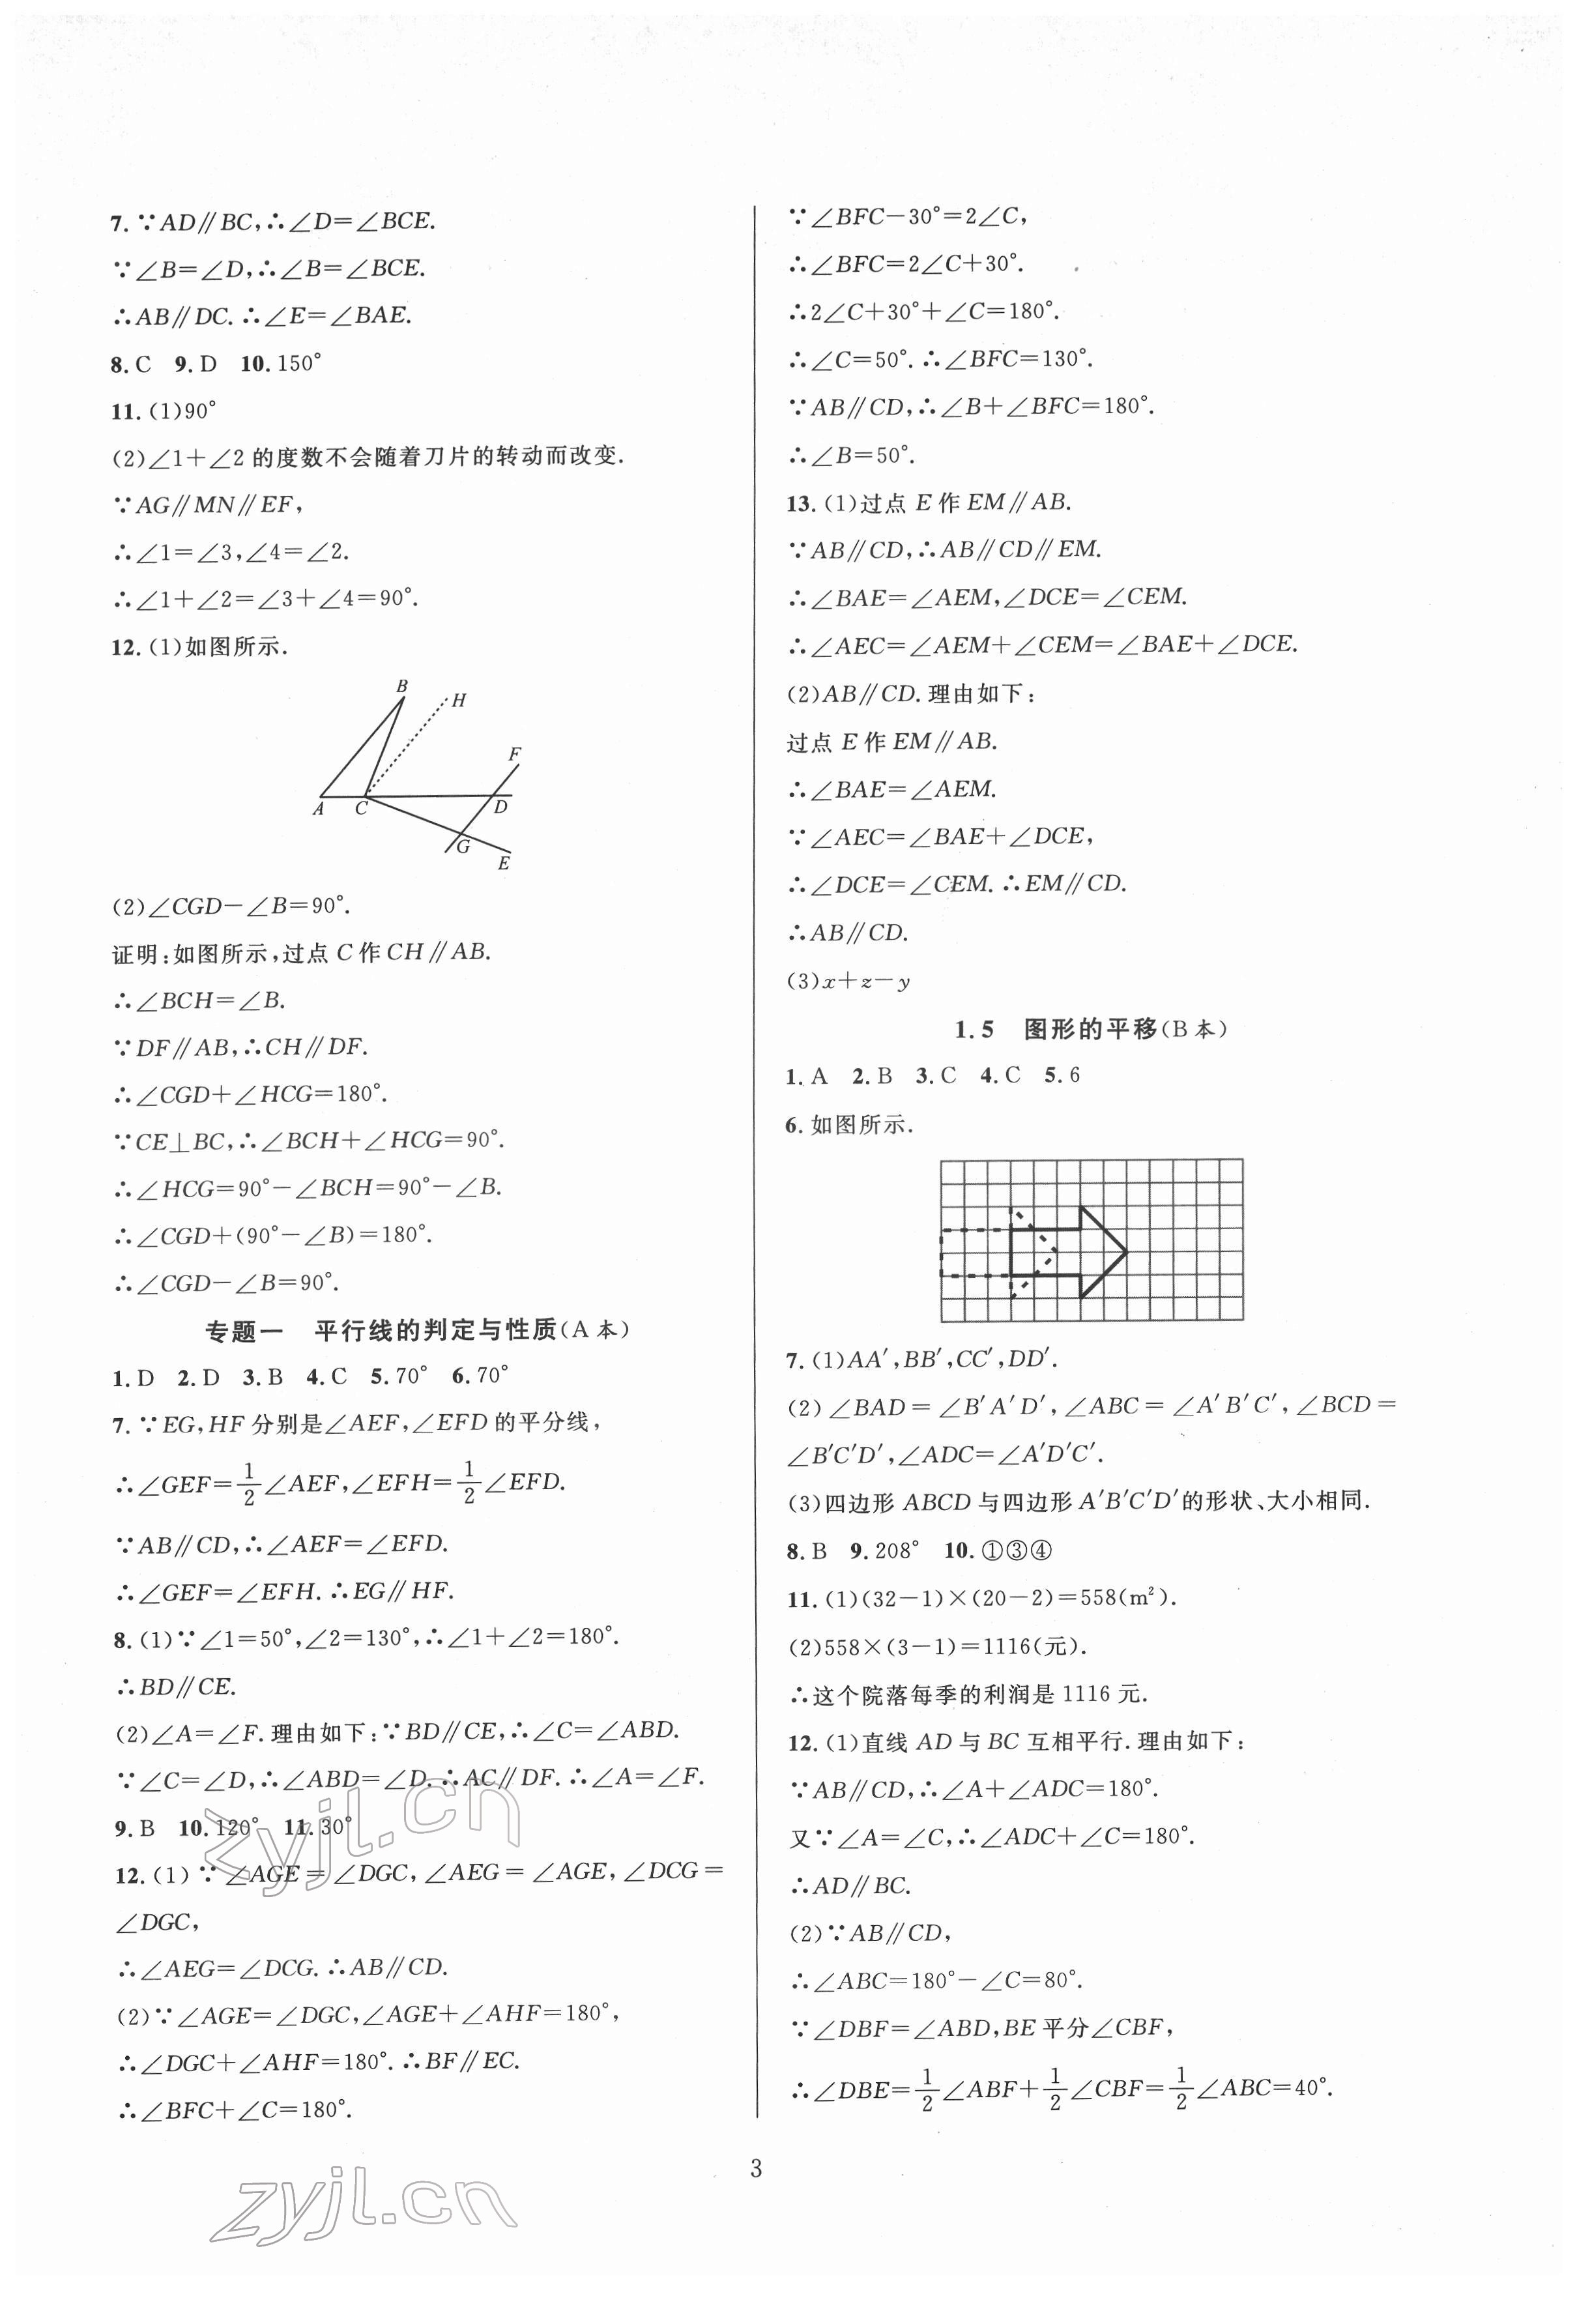 7. ∵AD∥BC,∴∠D=∠BCE.
∵∠B=∠D,∴∠B=∠BCE.
∴AB∥DC.∴∠E=∠BAE.
8. C 9. D 10. 150°
11. (1)90°
(2)∠1+∠2 的度数不会随着刀片的转动而改变.
∵AG∥MN∥EF,
∴∠1=∠3,∠4=∠2.
∴∠1+∠2=∠3+∠4=90°.
12. (1)如图所示.
B
H
F
A
C
D
G
E
(2)∠CGD-∠B=90°.
证明:如图所示,过点 C 作 CH∥AB.
∴∠BCH=∠B.
∵DF∥AB,∴CH∥DF.
∴∠CGD+∠HCG=180°.
∵CE⊥BC,∴∠BCH+∠HCG=90°.
∴∠HCG=90°-∠BCH=90°-∠B.
∴∠CGD+(90°-∠B)=180°.
∴∠CGD-∠B=90°.
专题一 平行线的判定与性质(A 本)
1. D 2. D 3. B 4. C 5. 70° 6. 70°
7. ∵EG,HF 分别是∠AEF,∠EFD 的平分线,
∴∠GEF=1/2∠AEF,∠EFH=1/2∠EFD.
∵AB∥CD,∴∠AEF=∠EFD.
∴∠GEF=∠EFH.∴EG∥HF.
8. (1)∵∠1=50°,∠2=130°,∴∠1+∠2=180°.
∴BD∥CE.
(2)∠A=∠F.理由如下:∵BD∥CE,∴∠C=∠ABD.
∵∠C=∠D,∴∠ABD=∠D.∴AC∥DF.∴∠A=∠F.
9. B 10. 120° 11. 30°
12. (1)∵∠AGE=∠DGC,∠AEG=∠AGE,∠DCG=
∠DGC,
∴∠AEG=∠DCG.∴AB∥CD.
(2)∵∠AGE=∠DGC,∠AGE+∠AHF=180°,
∴∠DGC+∠AHF=180°.∴BF∥EC.
∴∠BFC+∠C=180°.
∵∠BFC-30°=2∠C,
∴∠BFC=2∠C+30°.
∴2∠C+30°+∠C=180°.
∴∠C=50°.∴∠BFC=130°.
∵AB∥CD,∴∠B+∠BFC=180°.
∴∠B=50°.
13. (1)过点 E 作 EM∥AB.
∵AB∥CD,∴AB∥CD∥EM.
∴∠BAE=∠AEM,∠DCE=∠CEM.
∴∠AEC=∠AEM+∠CEM=∠BAE+∠DCE.
(2)AB∥CD.理由如下:
过点 E 作 EM∥AB.
∴∠BAE=∠AEM.
∵∠AEC=∠BAE+∠DCE,
∴∠DCE=∠CEM.∴EM∥CD.
∴AB∥CD.
(3)x+z-y
1.5 图形的平移(B 本)
1. A 2. B 3. C 4. C 5. 6
6. 如图所示.
7. (1)AA′,BB′,CC′,DD′.
(2)∠BAD=∠B′A′D′,∠ABC=∠A′B′C′,∠BCD=
∠B′C′D′,∠ADC=∠A′D′C′.
(3)四边形 ABCD 与四边形 A′B′C′D′的形状、大小相同.
8. B 9. 208° 10. ①③④
11. (1)(32-1)×(20-2)=558(m²).
(2)558×(3-1)=1116(元).
∴这个院落每季的利润是 1116 元.
12. (1)直线 AD 与 BC 互相平行.理由如下:
∵AB∥CD,∴∠A+∠ADC=180°.
又∵∠A=∠C,∴∠ADC+∠C=180°.
∴AD∥BC.
(2)∵AB∥CD,
∴∠ABC=180°-∠C=80°.
∵∠DBF=∠ABD,BE 平分∠CBF,
∴∠DBE=1/2∠ABF+1/2∠CBF=1/2∠ABC=40°.
3
zyjl.cn
zyjl.cn